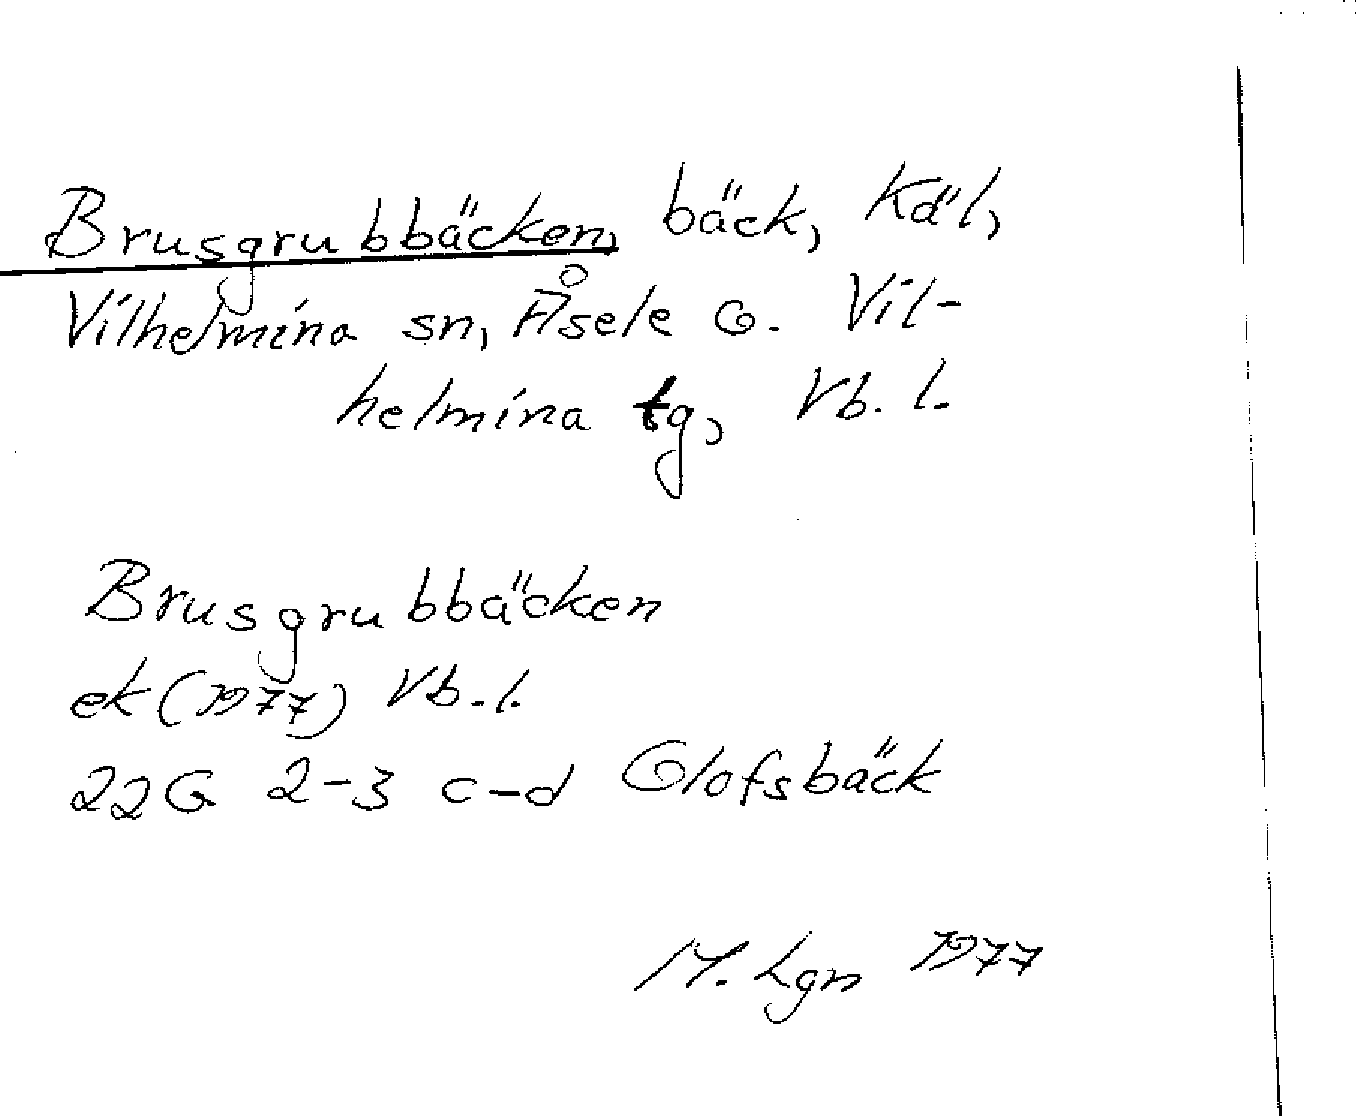 Brusgrubbbäcken, bäck, Käl,
Vilhelmina sn, Åsele o. Vil-
helmina tg, Vb. l.
Brusgrubbbäcken
ek (1977) Vb. l.
22G 2-3 c-d Olofsbäck
M. Lgn 1977